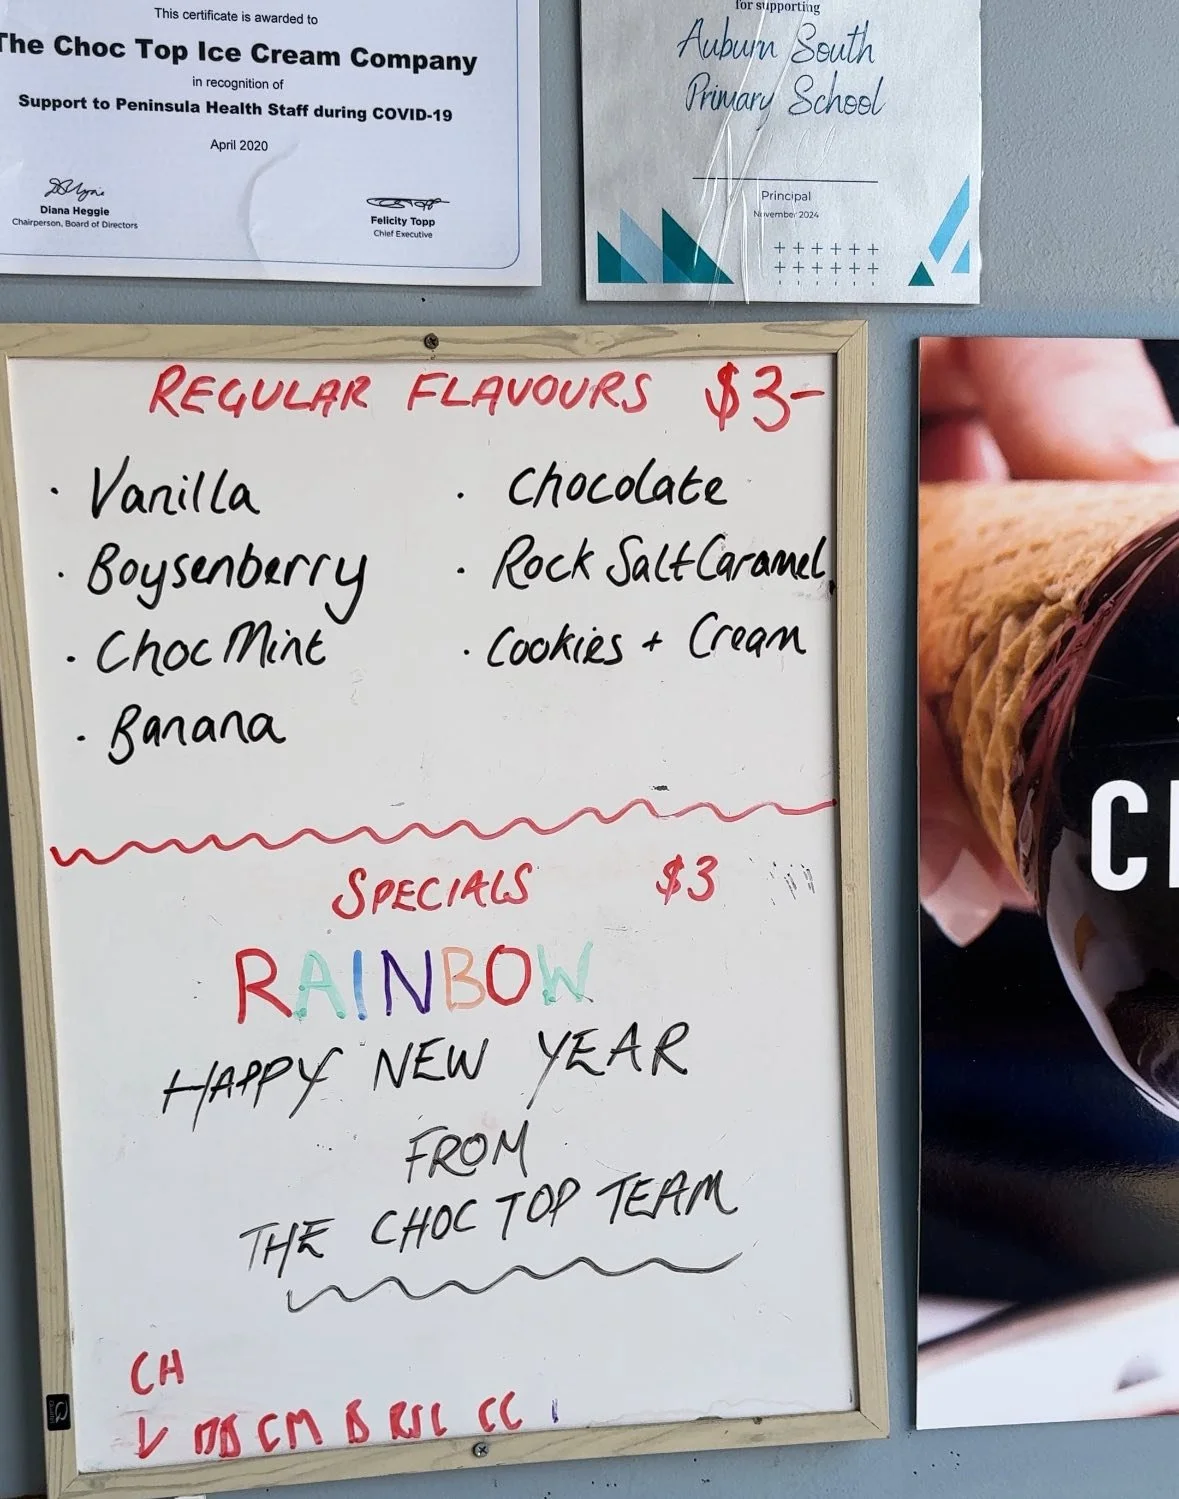 This certificate is awarded to
The Choc Top Ice Cream Company
in recognition of
Support to Peninsula Health Staff during COVID-19
April 2020
Diana Heggie
Chairperson, Board of Directors
Felicity Topp
Chief Executive
for supporting
Auburn South
Primary School
Principal
November 2024
REGULAR FLAVOURS $3-
· Vanilla
· Chocolate
· Boysenberry
· Rock Salt Caramel
· Choc Mint
· Cookies + Cream
· Banana
SPECIALS $3
RAINBOW
HAPPY NEW YEAR
FROM
THE CHOC TOP TEAM
CH
V BB CM B RSC CC